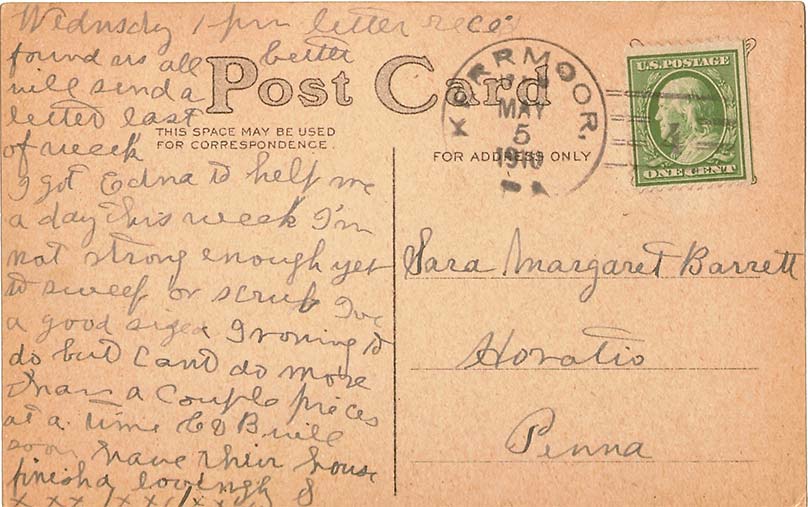 Wednsday 1 pm letter rec
found us all better
will send a
letter last
of week
I got Edna to help me
a day this week I'm
not strong enough yet
to sweep or scrub I've
a good sized Ironing to
do but cant do more
than a Couple pieces
at a time E & B will
soon have their house
finishd lovingly
x x x x x x x x
Post Card
THIS SPACE MAY BE USED
FOR CORRESPONDENCE.
FOR ADDRESS ONLY
KERRMOOR,
MAY
5
1910
PA
U.S. POSTAGE
ONE CENT
Sara Margaret Barrett
Horatio
Penna